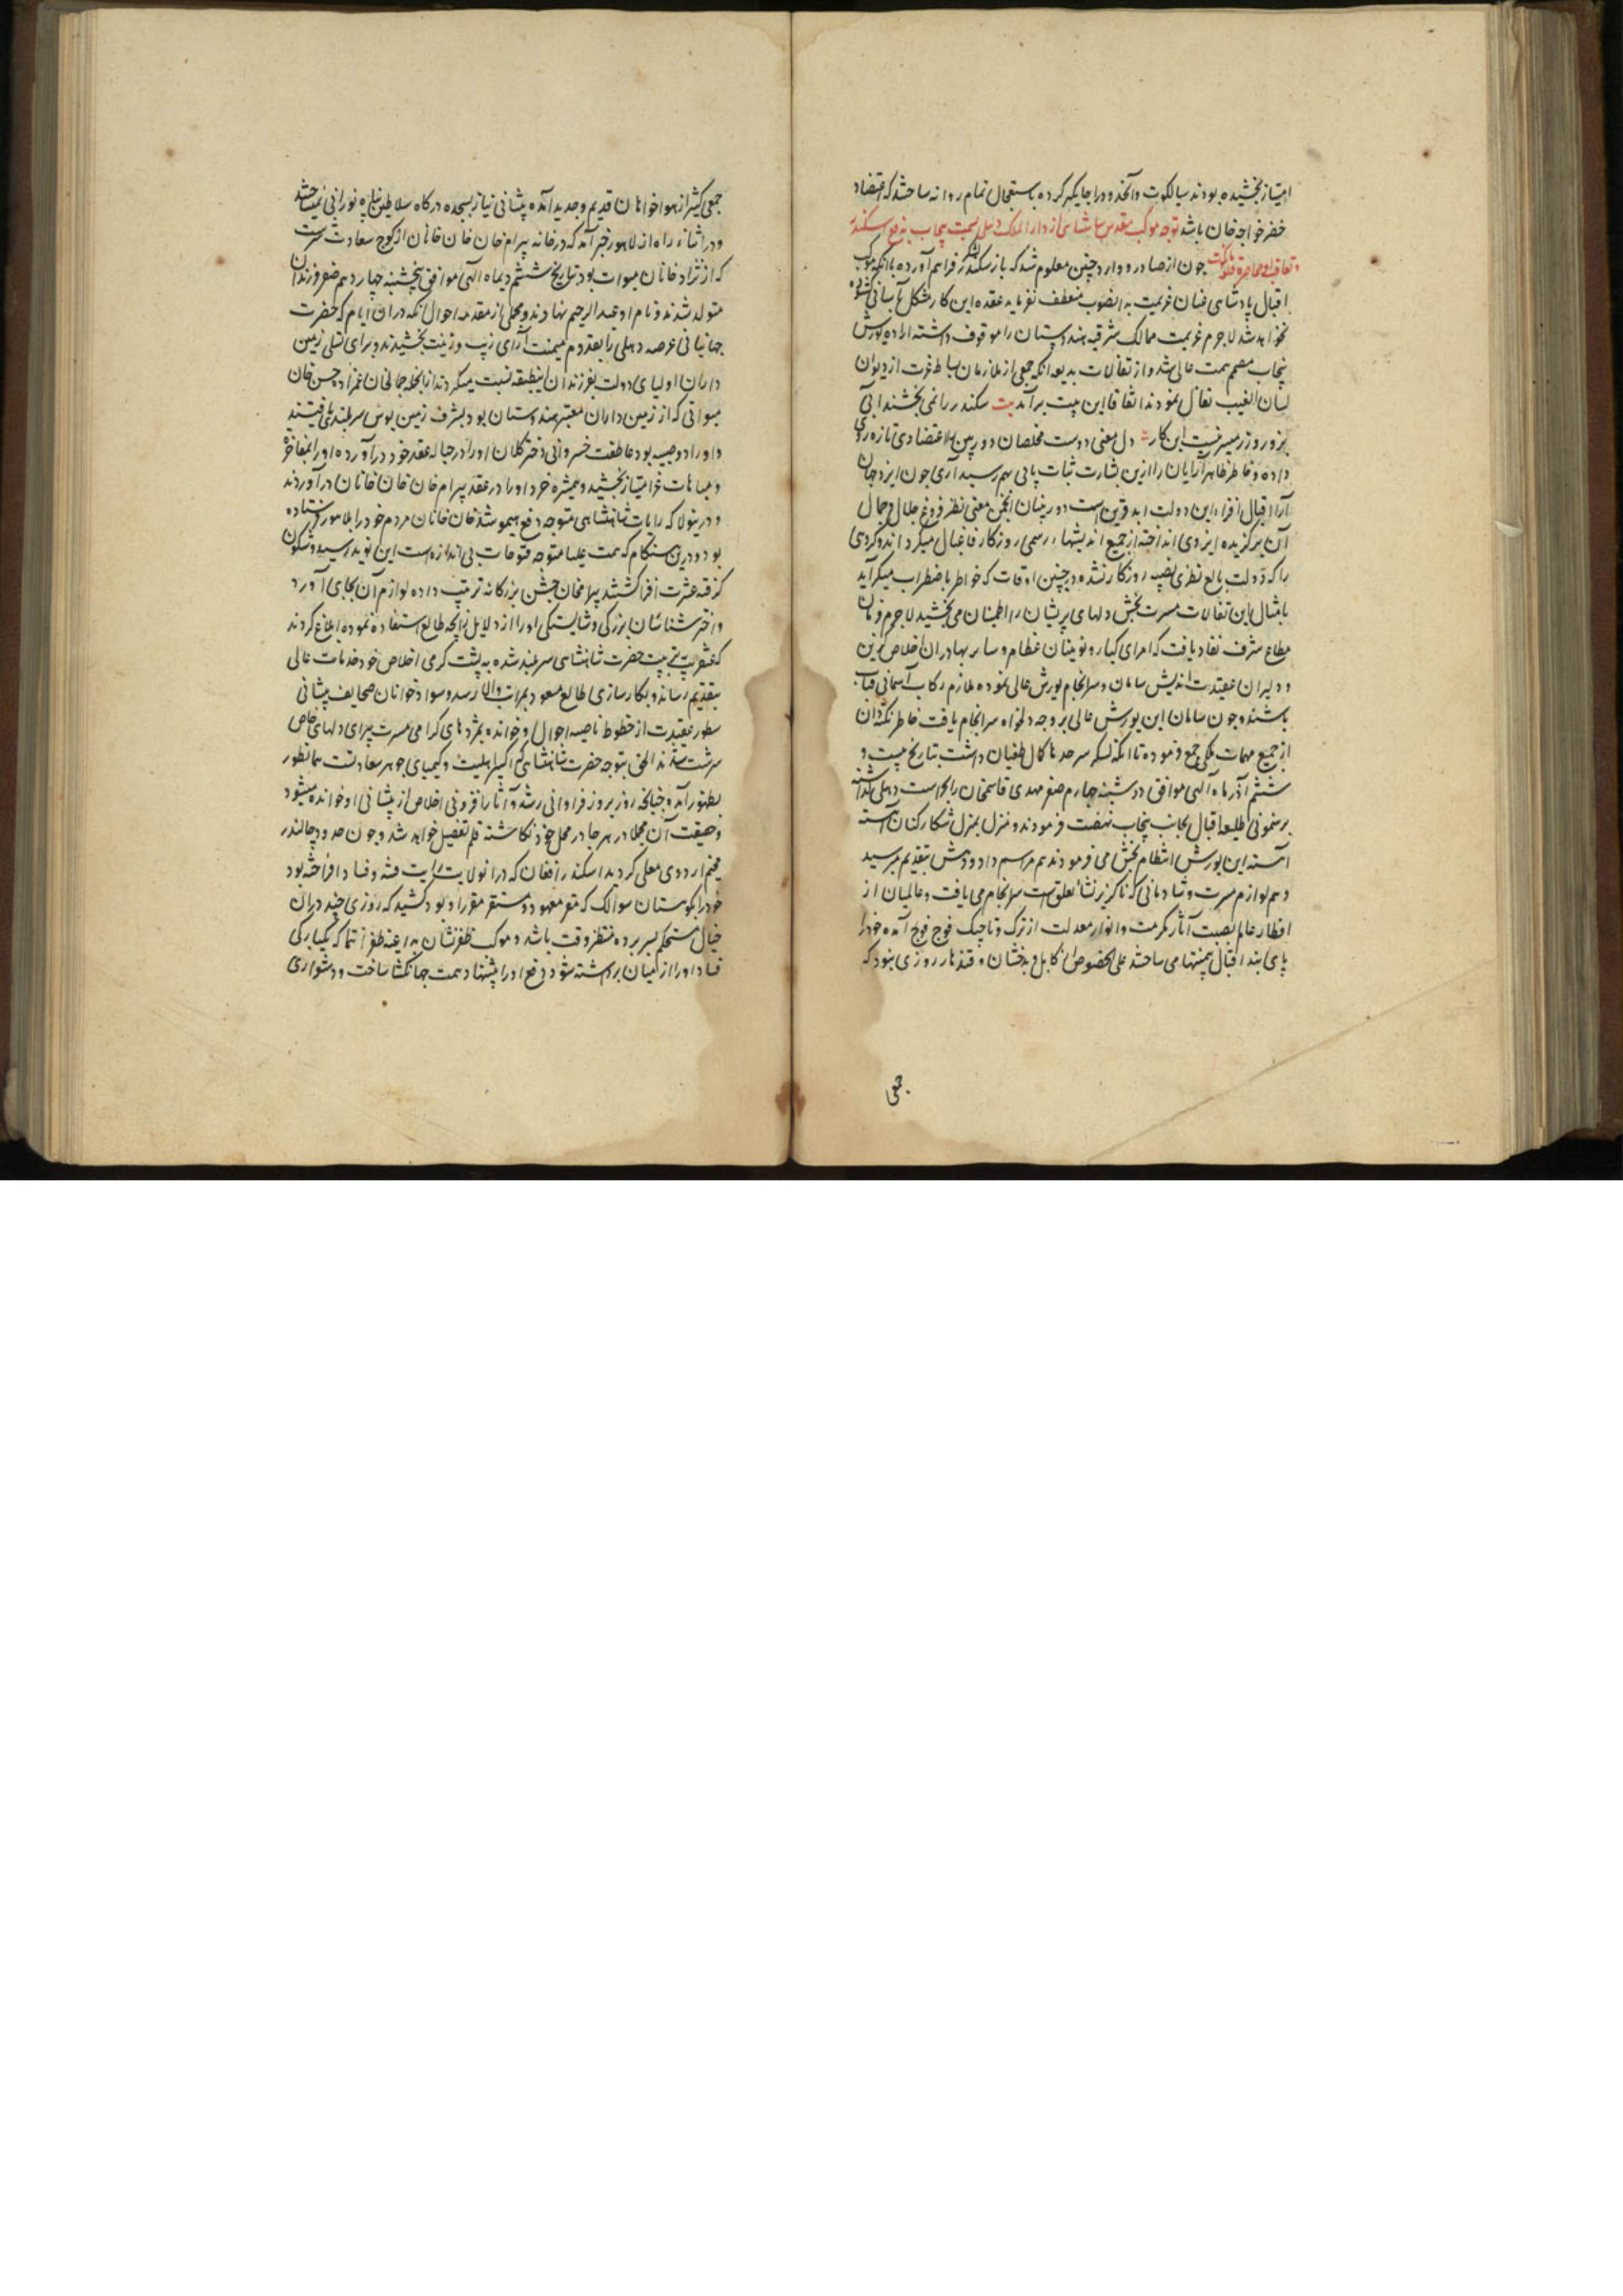 امتیاز بخشیده بودند سیالکوت و آنحدود را جایگیر کرده باستعجال تمام روانه ساختند که اعتضاد
خضر خواجه خان باشد توجه موکب مقدس شاهنشاهی از دار الملک دهلی بسمت پنجاب بدفع اسکندر
و تعاقب او و محاصره قلعه مانکوت چون از صادر و وارد چنین معلوم شد که باز سکندر لشکر فراهم آورده با آنکه موکب
اقبال پادشاهی عنان عزیمت به آنصوب منعطف نفرماید عقده این کار مشکل بآسانی گشوده
نخواهد شد لاجرم عزیمت ممالک شرقیه هندوستان را موقوف داشته اراده یورش
پنجاب مصمم همت عالی شد و از تفألات بدیعه آنکه جمعی از ملازمان بساط عزت از دیوان
لسان الغیب تفأل نمودند اتفاقا این بیت برآمد بیت سکندر را نمی بخشند آبی
بزور و زر میسر نیست این کار دل معنی دوست مخلصان دوربین را اعتضادی تازه روی
داده و خاطر ظاهر آرایان را ازین بشارت ثبات پائی بهم رسید آری چون ایزد جهان
آرا اقبال افزاء این دولت ابد قرین است دوربینان انجمن معنی نظر فروغ جلال و جمال
آن برگزیده ایزدی انداخته از جمیع اندیشهاء رسمی روزگار فارغبال میگرداند و گروهی
را که دولت بالغ نظری نصیبه روزگار نشده در چنین اوقات که خواطر باضطراب میگراید
بامثال این تفالات مسرت بخش دلهای پریشان را اطمینان می بخشید لاجرم فرمان
مطاع شرف نفاد یافت که امرای کبار و نوئینان عظام و سایر بهادران اخلاص گزین
و دلیران عقیدت اندیش سامان و سرانجام یورش عالی نموده ملازم رکاب آسمانی قباب
باشند و چون سامان این یورش عالی بر وجه دلخواه سرانجام یافت خاطر نکته دان
از جمیع مهمات ملکی جمع فرموده تا آنکه لشکر سرحدها کمال طغیان داشت بتاریخ بیست و
ششم آذر ماه آلهی موافق دوشنبه چهارم صفر مهدی قاسم خان را بحراست دهلی گذاشته
برهنمونی طلیعه اقبال بجانب پنجاب نهضت فرمودند و منزل بمنزل شکار کنان آهسته
آهسته این یورش انتظام بخش می فرمودند هم مراسم داد و دهش بتقدیم میرسید
و هم لوازم مسرت و شادمانی که ناگزیر نشأ تعلق است سرانجام می یافت و عالمیان از
اقطار عالم بصیت آثار مکرمت و انوار معدلت از ترک و تاجیک فوج فوج آمده خود را
پای بند اقبال بیمنتها می ساختند علی الخصوص از کابل و بدخشان و قندهار روزی نبود که
جمعی
جمعی کثیر از هواخواهان قدیم و جدید آمده پیشانی نیاز بسجده درگاه سلاطین پناه نورانی نمیساختند
و در اثناء راه از لاهور خبر آمد که در خانه بیرام خان خان خانان از کوچ سعادت سرشت
که از نژاد خانان میوات بود بتاریخ ششم دیماه آلهی موافق پنجشنبه چهاردهم صفر فرزندان
متولد شدند و نام او عبدالرحیم نهادند و مجملی از مقدمه احوال آنکه دران ایام که حضرت
جهانبانی عرصه دهلی را بقدوم میمنت آرای زیب و زینت بخشیدند و برای تسلی زمین
داران اولیای دولت بفرزندان اینطبقه نسبت میکردند از آنجمله جمالخان عمزاد حسن خان
میواتی که از زمین داران معتبر هندوستان بود بشرف زمین بوس سربلندی یافتند
و او را دو صبیه بود عاطفت خسروانی دختر کلان او را در حباله عقد خود درآورده او را بمفاخرت
و مباهات عز امتیاز بخشید و همشیره خرد او را در عقد بیرام خان خان خانان درآوردند
و درینولا که رایات شاهنشاهی متوجه دفع هیمو شد خان خانان مردم خود را بلاهور فرستاده
بود و درین هنگام که همت علیا متوجه فتوحات بی اندازه است این نوید رسید و شگون
گرفته عشرت افزا گشتند بیرامخان جشن بزرگانه ترتیب داده لوازم آن بجای آورد
و اختر شناسان بزرگی و شایستگی او را از دلایل زایچه طالع استفاده نموده ابلاغ کردند
که عنقریب بتربیت حضرت شاهنشاهی سربلند شده به پشت گرمی اخلاص خود خدمات عالی
بتقدیم رساند و بکارسازی طالع مسعود بمراتب والا رسد و سواد خوانان صحایف پیشانی
سطور عقیدت از خطوط ناصیه احوال او خوانده بمژدهای گرامی مسرت پیرای دلهای خاص
سرشت شدند الحق بتوجه حضرت شاهنشاهی که اکسیر اهلیت و کیمیای جوهر سعادتست همانطور
بظهور آمد چنانچه روز بروز فراوانی رشد و آثار افزونی اخلاص از پیشانی او خوانده میشود
و حقیقت آن مجملا در هر جا در محل خود نگاشته قلم تفصیل خواهد شد و چون حدود جالندر
مخیم اردوی معلی گردید اسکندر افغان که درانولایت رایت فتنه و فساد افراخته بود
خود را بکوهستان سوالک که مقر معهود و مستقر مقرر او بود کشید که روزی چند دران
خیال مستحکم بسر برده منتظر وقت باشد و موکب ظفر نشان بداعیه ظفر انتما که یکبارگی
فساد او را از میان برداشته شود دفع او را پیشنهاد همت جهانگشا ساخت و دشواری